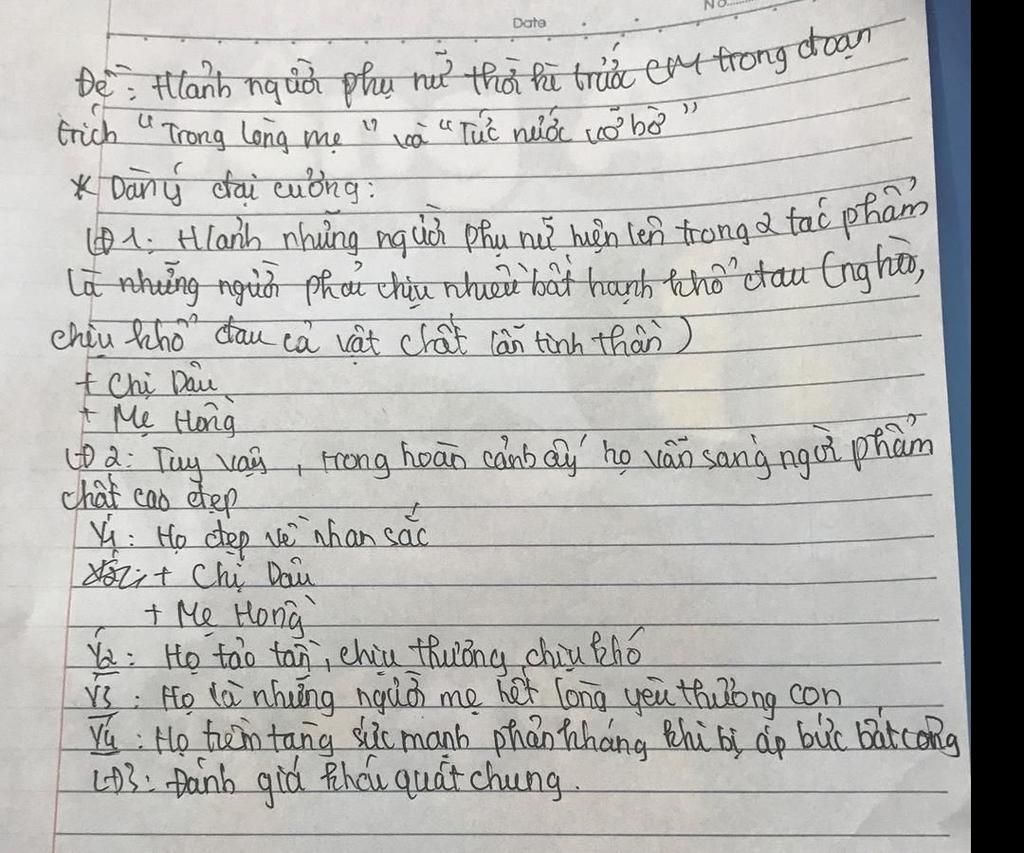 Date
No.
Đề: Hình ảnh người phụ nữ thời kì trước CM trong đoạn
trích "Trong lòng mẹ" và "Tức nước vỡ bờ"
* Dàn ý đại cương:
LĐ1: H/ảnh những người phụ nữ hiện lên trong 2 tác phẩm
là những người phải chịu nhiều bất hạnh khổ đau (nghèo,
chịu khổ đau cả vật chất lẫn tinh thần)
+ Chị Dậu
+ Mẹ Hồng
LĐ2: Tuy vậy, trong hoàn cảnh ấy họ vẫn sáng ngời phẩm
chất cao đẹp
Ý1: Họ đẹp về nhan sắc
+ Chị Dậu
+ Mẹ Hồng
Ý2: Họ tảo tần, chịu thương chịu khó
Ý3: Họ là những người mẹ hết lòng yêu thương con
Ý4: Họ tiềm tàng sức mạnh phản kháng khi bị áp bức bất công
LĐ3: Đánh giá khái quát chung.